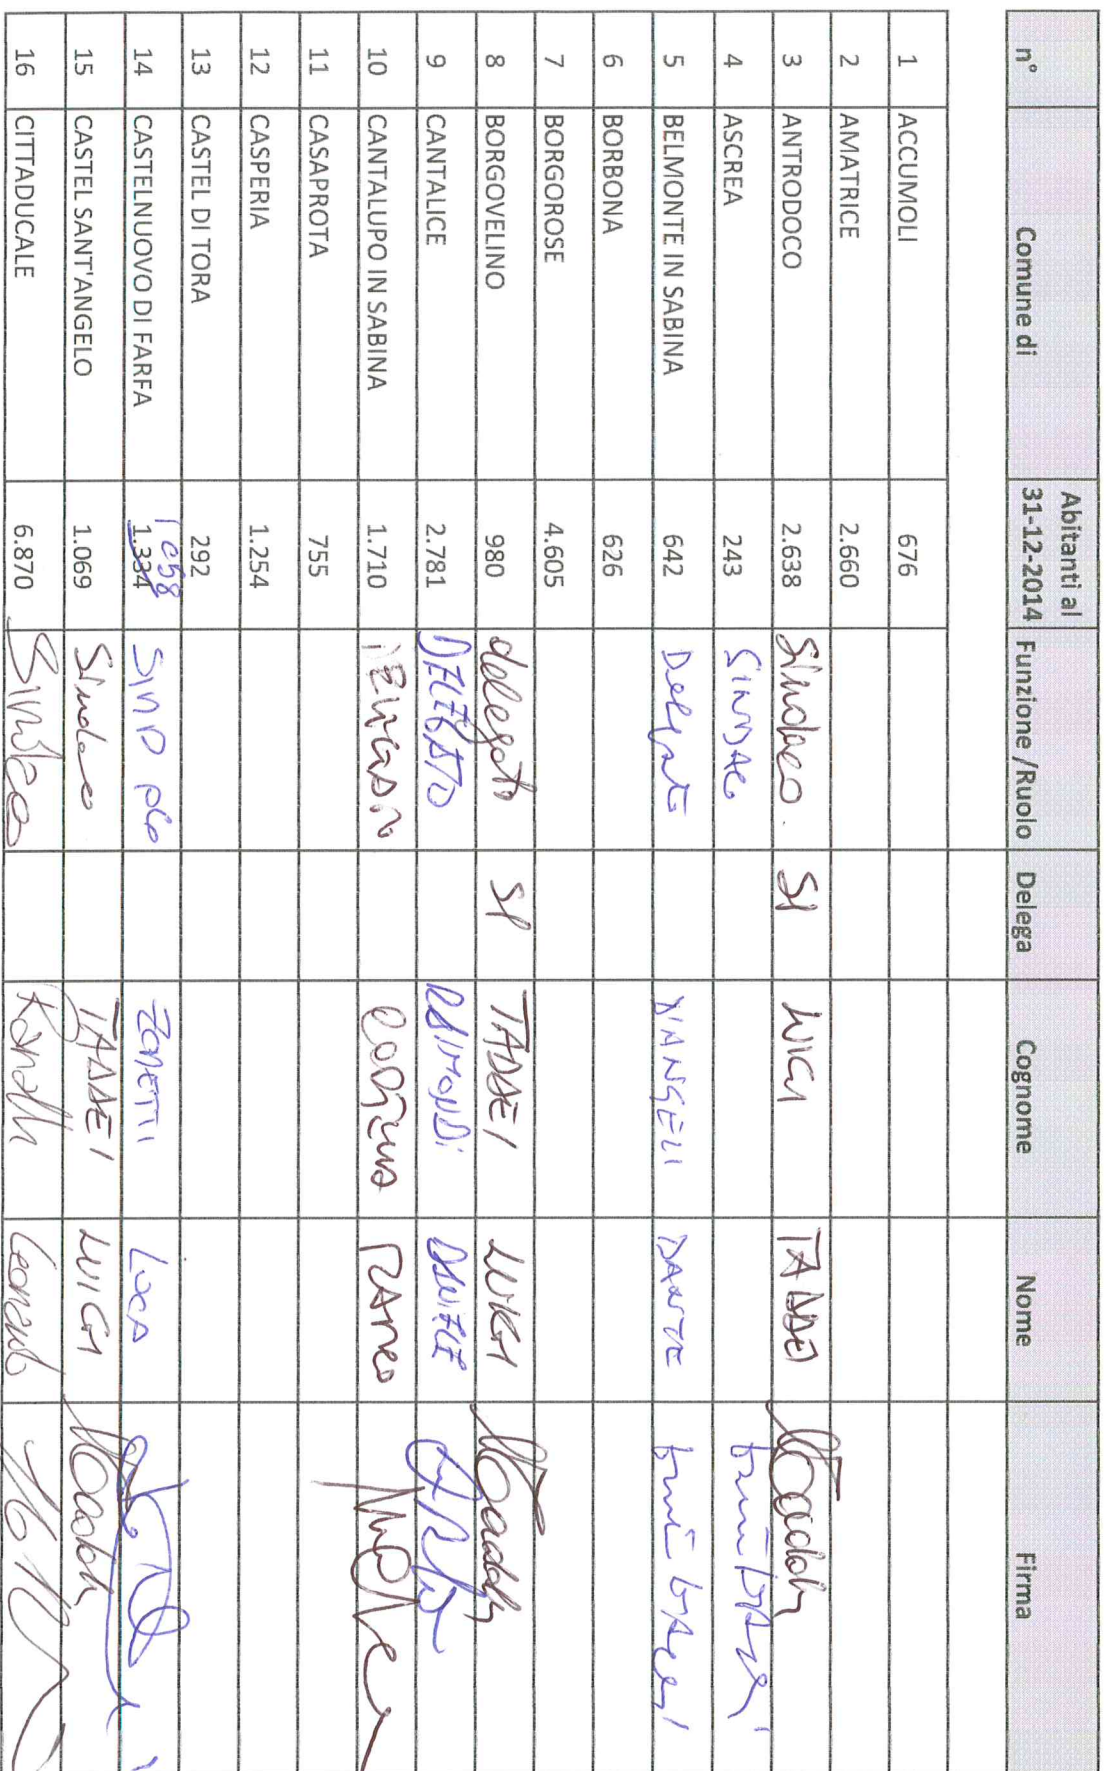 n° Comune di Abitanti al 31-12-2014 Funzione /Ruolo Delega Cognome Nome Firma
1 ACCUMOLI 676
2 AMATRICE 2.660
3 ANTRODOCO 2.638 Sindaco. SI LUIGI TADDEI
4 ASCREA 243 SINDACO
5 BELMONTE IN SABINA 642 Delegato D'ANGELI DANTE
6 BORBONA 626
7 BORGOROSE 4.605
8 BORGOVELINO 980 delegato SI TADDEI LUIGI
9 CANTALICE 2.781 DELEGATO RAIMONDI DANIELE
10 CANTALUPO IN SABINA 1.710
11 CASAPROTA 755
12 CASPERIA 1.254
13 CASTEL DI TORA 292
14 CASTELNUOVO DI FARFA 1.334 1058 SINDACO ZONETTI LUCA
15 CASTEL SANT'ANGELO 1.069 Sindaco TADDEI LUIGI
16 CITTADUCALE 6.870 Sindaco Ranalli Leonardo